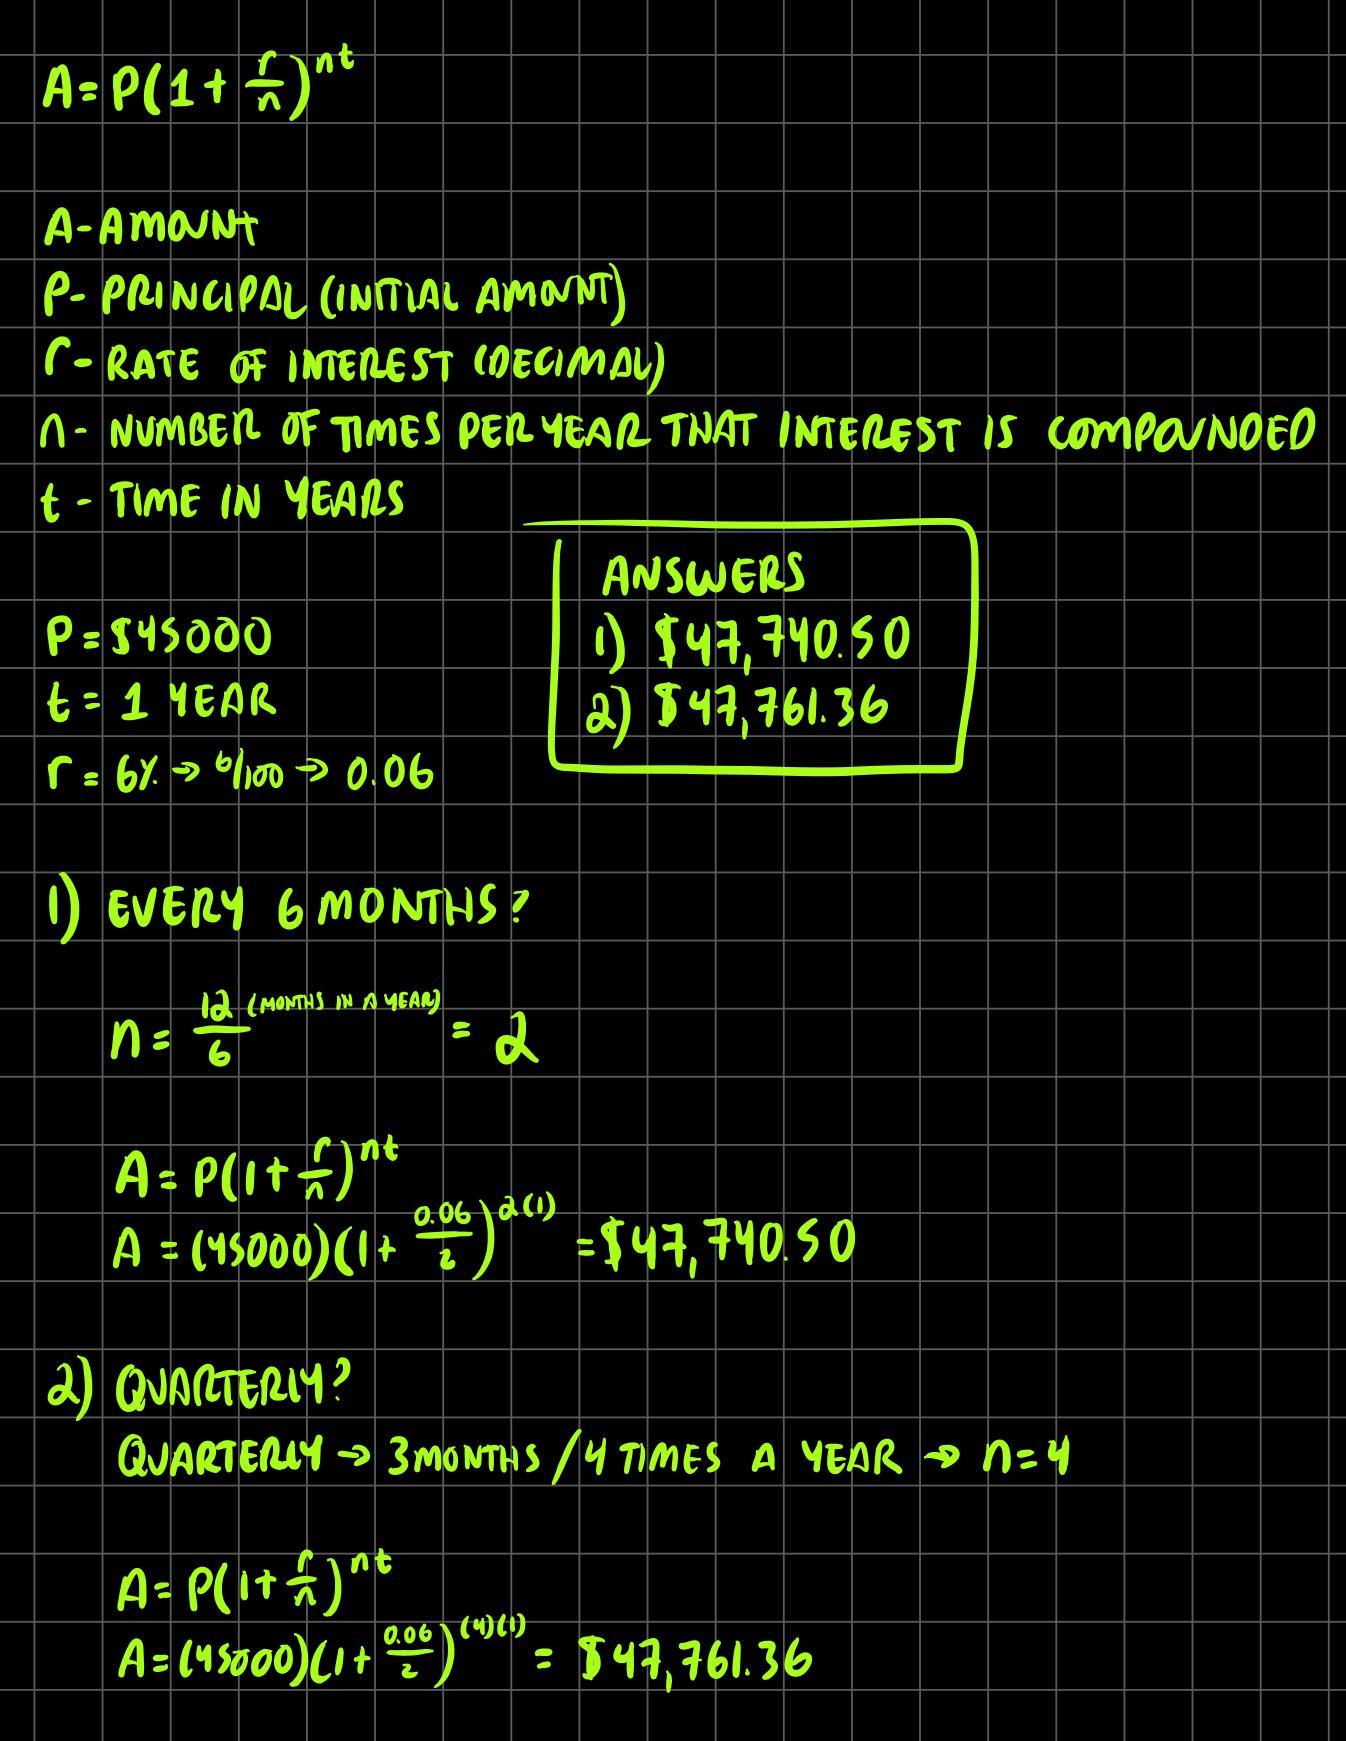 A = P(1 + r/n)^nt
A - AMOUNT
P - PRINCIPAL (INITIAL AMOUNT)
r - RATE OF INTEREST (DECIMAL)
n - NUMBER OF TIMES PER YEAR THAT INTEREST IS COMPOUNDED
t - TIME IN YEARS
P = $45000
t = 1 YEAR
r = 6% → 6/100 → 0.06
ANSWERS
1) $47,740.50
2) $47,761.36
1) EVERY 6 MONTHS?
n = 12 (MONTHS IN A YEAR)/6 = 2
A = P(1 + r/n)^nt
A = (45000)(1 + 0.06/2)^2(1) = $47,740.50
2) QUARTERLY?
QUARTERLY → 3 MONTHS / 4 TIMES A YEAR → n = 4
A = P(1 + r/n)^nt
A = (45000)(1 + 0.06/2)^(4)(1) = $47,761.36